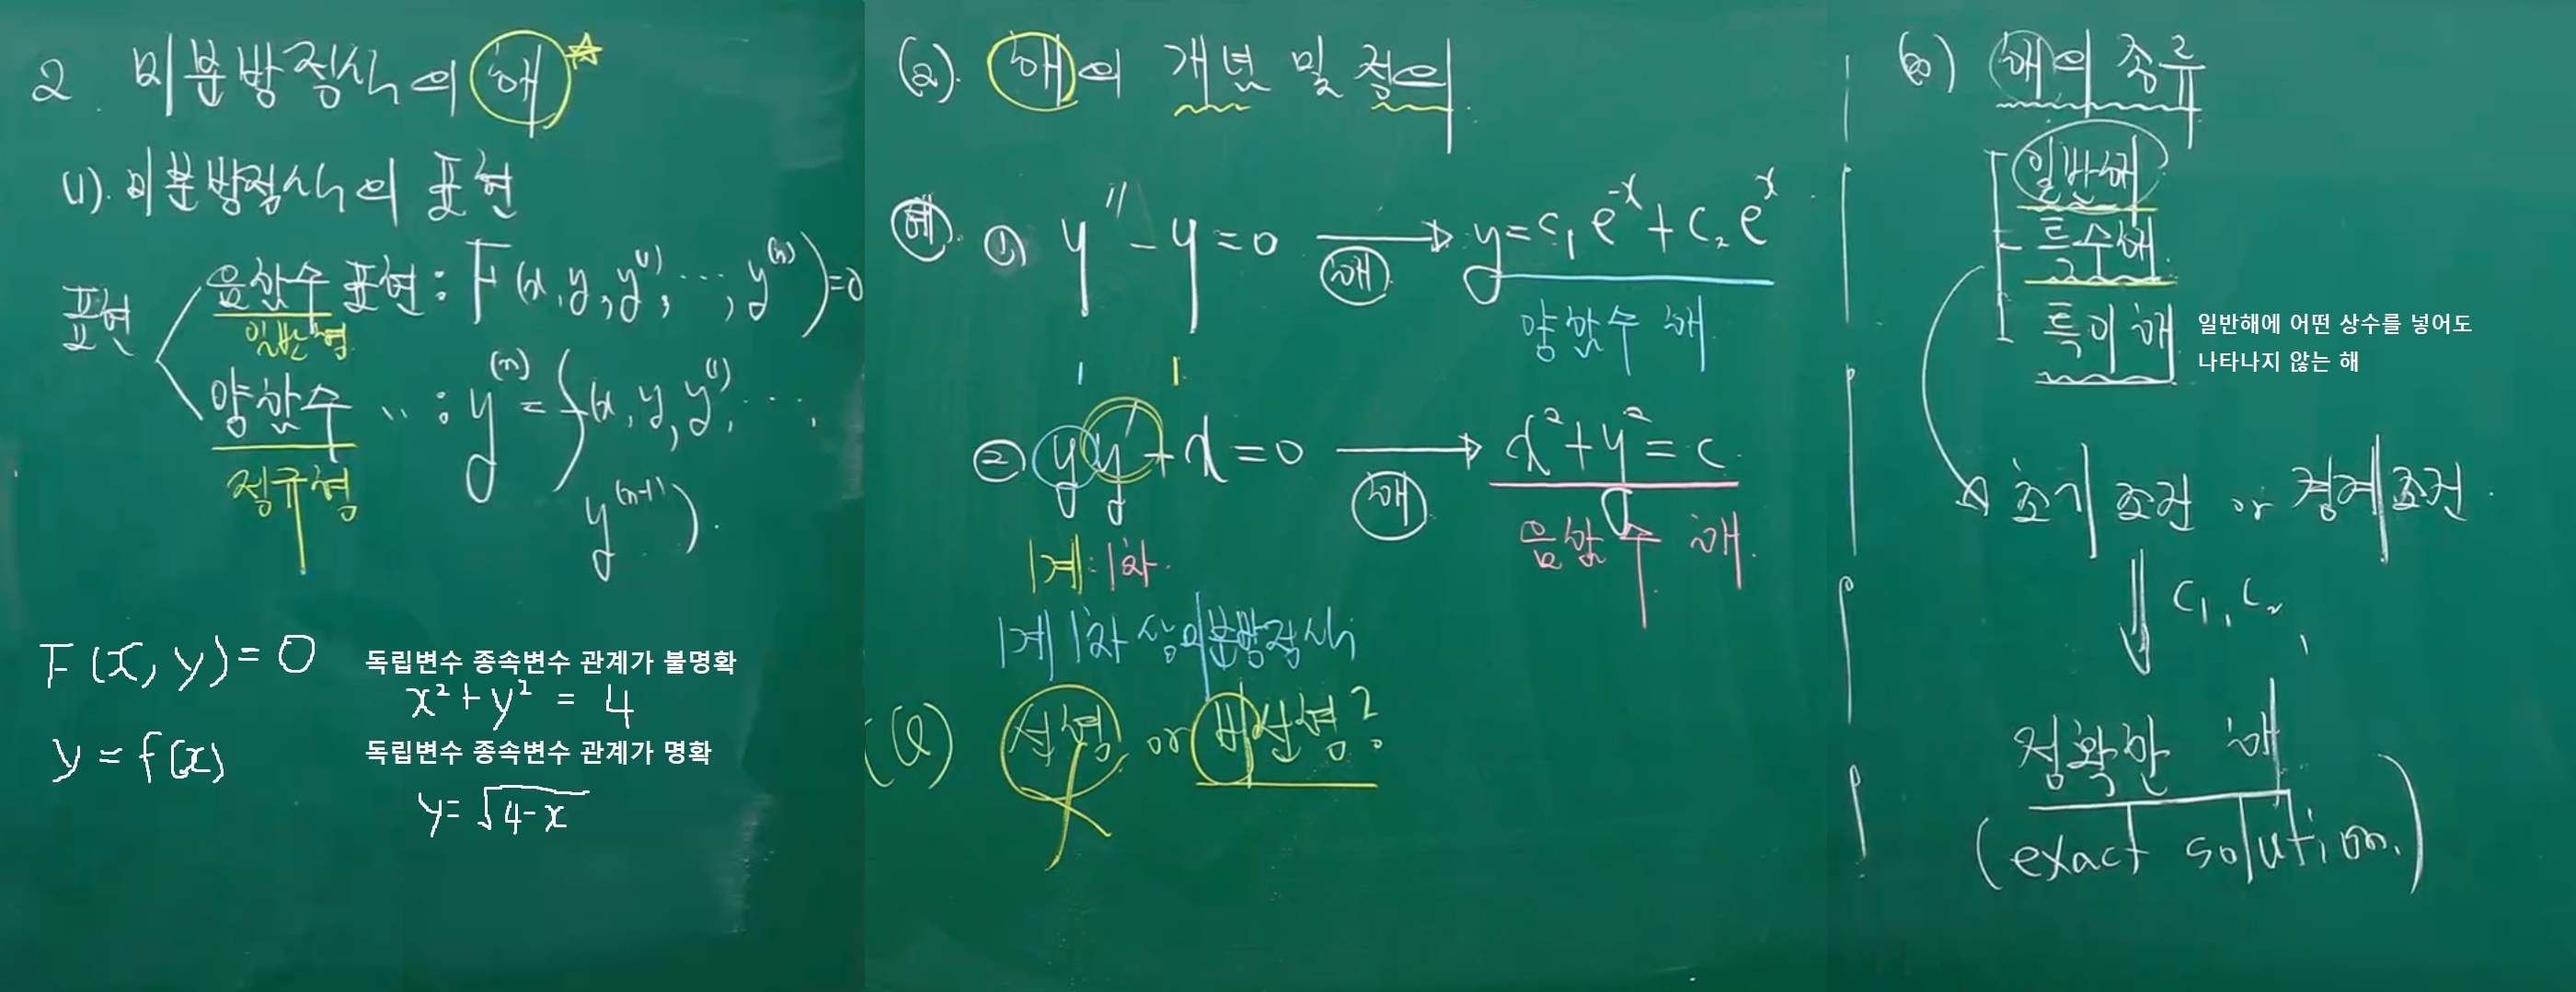 2. 미분방정식의 해
(1). 미분방정식의 표현
표현
음함수 표현 : F(x, y, y⁽¹⁾, ⋯, y⁽ⁿ⁾)=0
일반형
양함수 〃 : y⁽ⁿ⁾ = f(x, y, y⁽¹⁾, ⋯,
y⁽ⁿ⁻¹⁾).
정규형
F(x, y) = 0
독립변수 종속변수 관계가 불명확
x² + y² = 4
y = f(x)
독립변수 종속변수 관계가 명확
y = √4-x
(2). 해의 개념 및 정의
예. ① y'' - y = 0 → 해 y = c₁e⁻ˣ + c₂eˣ
양함수 해
1 1
② yy' + x = 0 → 해 x² + y² = c.
음함수 해.
1계 : 1차.
1계 1차 상미분방정식
(Q) 선형 or 비선형?
(3) 해의 종류
일반해
특수해
특이해
일반해에 어떤 상수를 넣어도
나타나지 않는 해
초기조건 or 경계조건.
c₁, c₂
정확한 해
(exact solution.)